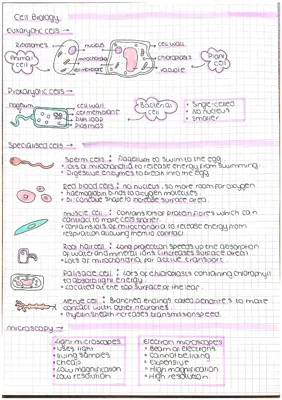 Cell Biology
Eukaryotic cells →
Ribosomes
nucleus
cell wall
Animal cell
mitochondria
chloroplasts
Plant cell
membrane
vacuole
Prokaryotic cells →
flagellum
cell wall
cell membrane
DNA loop
plasmids
Bacterial cell
• Single-celled
• No nucleus
• Smaller
Specialised cells →
Sperm cells: Flagellum to swim to the egg
• Lots of mitochondria to release energy from swimming
• Digestive enzymes to break into the egg
Red blood cells: no nucleus, so more room for oxygen
• haemoglobin binds to oxygen molecules
• Bi-concave shape to increase surface area
muscle cell: contains lots of protein fibres which can
contract to make cell shorter
• contains lots of mitochondria to release energy from
respiration allowing them to contract
Root hair cell: Long projection speeds up the absorption
of water and mineral ions (increases surface area)
• Lots of mitochondria for active transport
Palisade cell: Lots of chloroplasts containing chlorophyll
to absorb light energy
• Located at the top surface of the leaf
Nerve cell: Branched endings called dendrites to make
contact with other neurones
• Myelin sheath increases transmission speed
microscopy →
Light microscopes
• uses light
• Living samples
• Cheap
• Low magnification
• Low resolution
Electron microscopes
• Beam of electrons
• Cannot be living
• Expensive
• High magnification
• High resolution